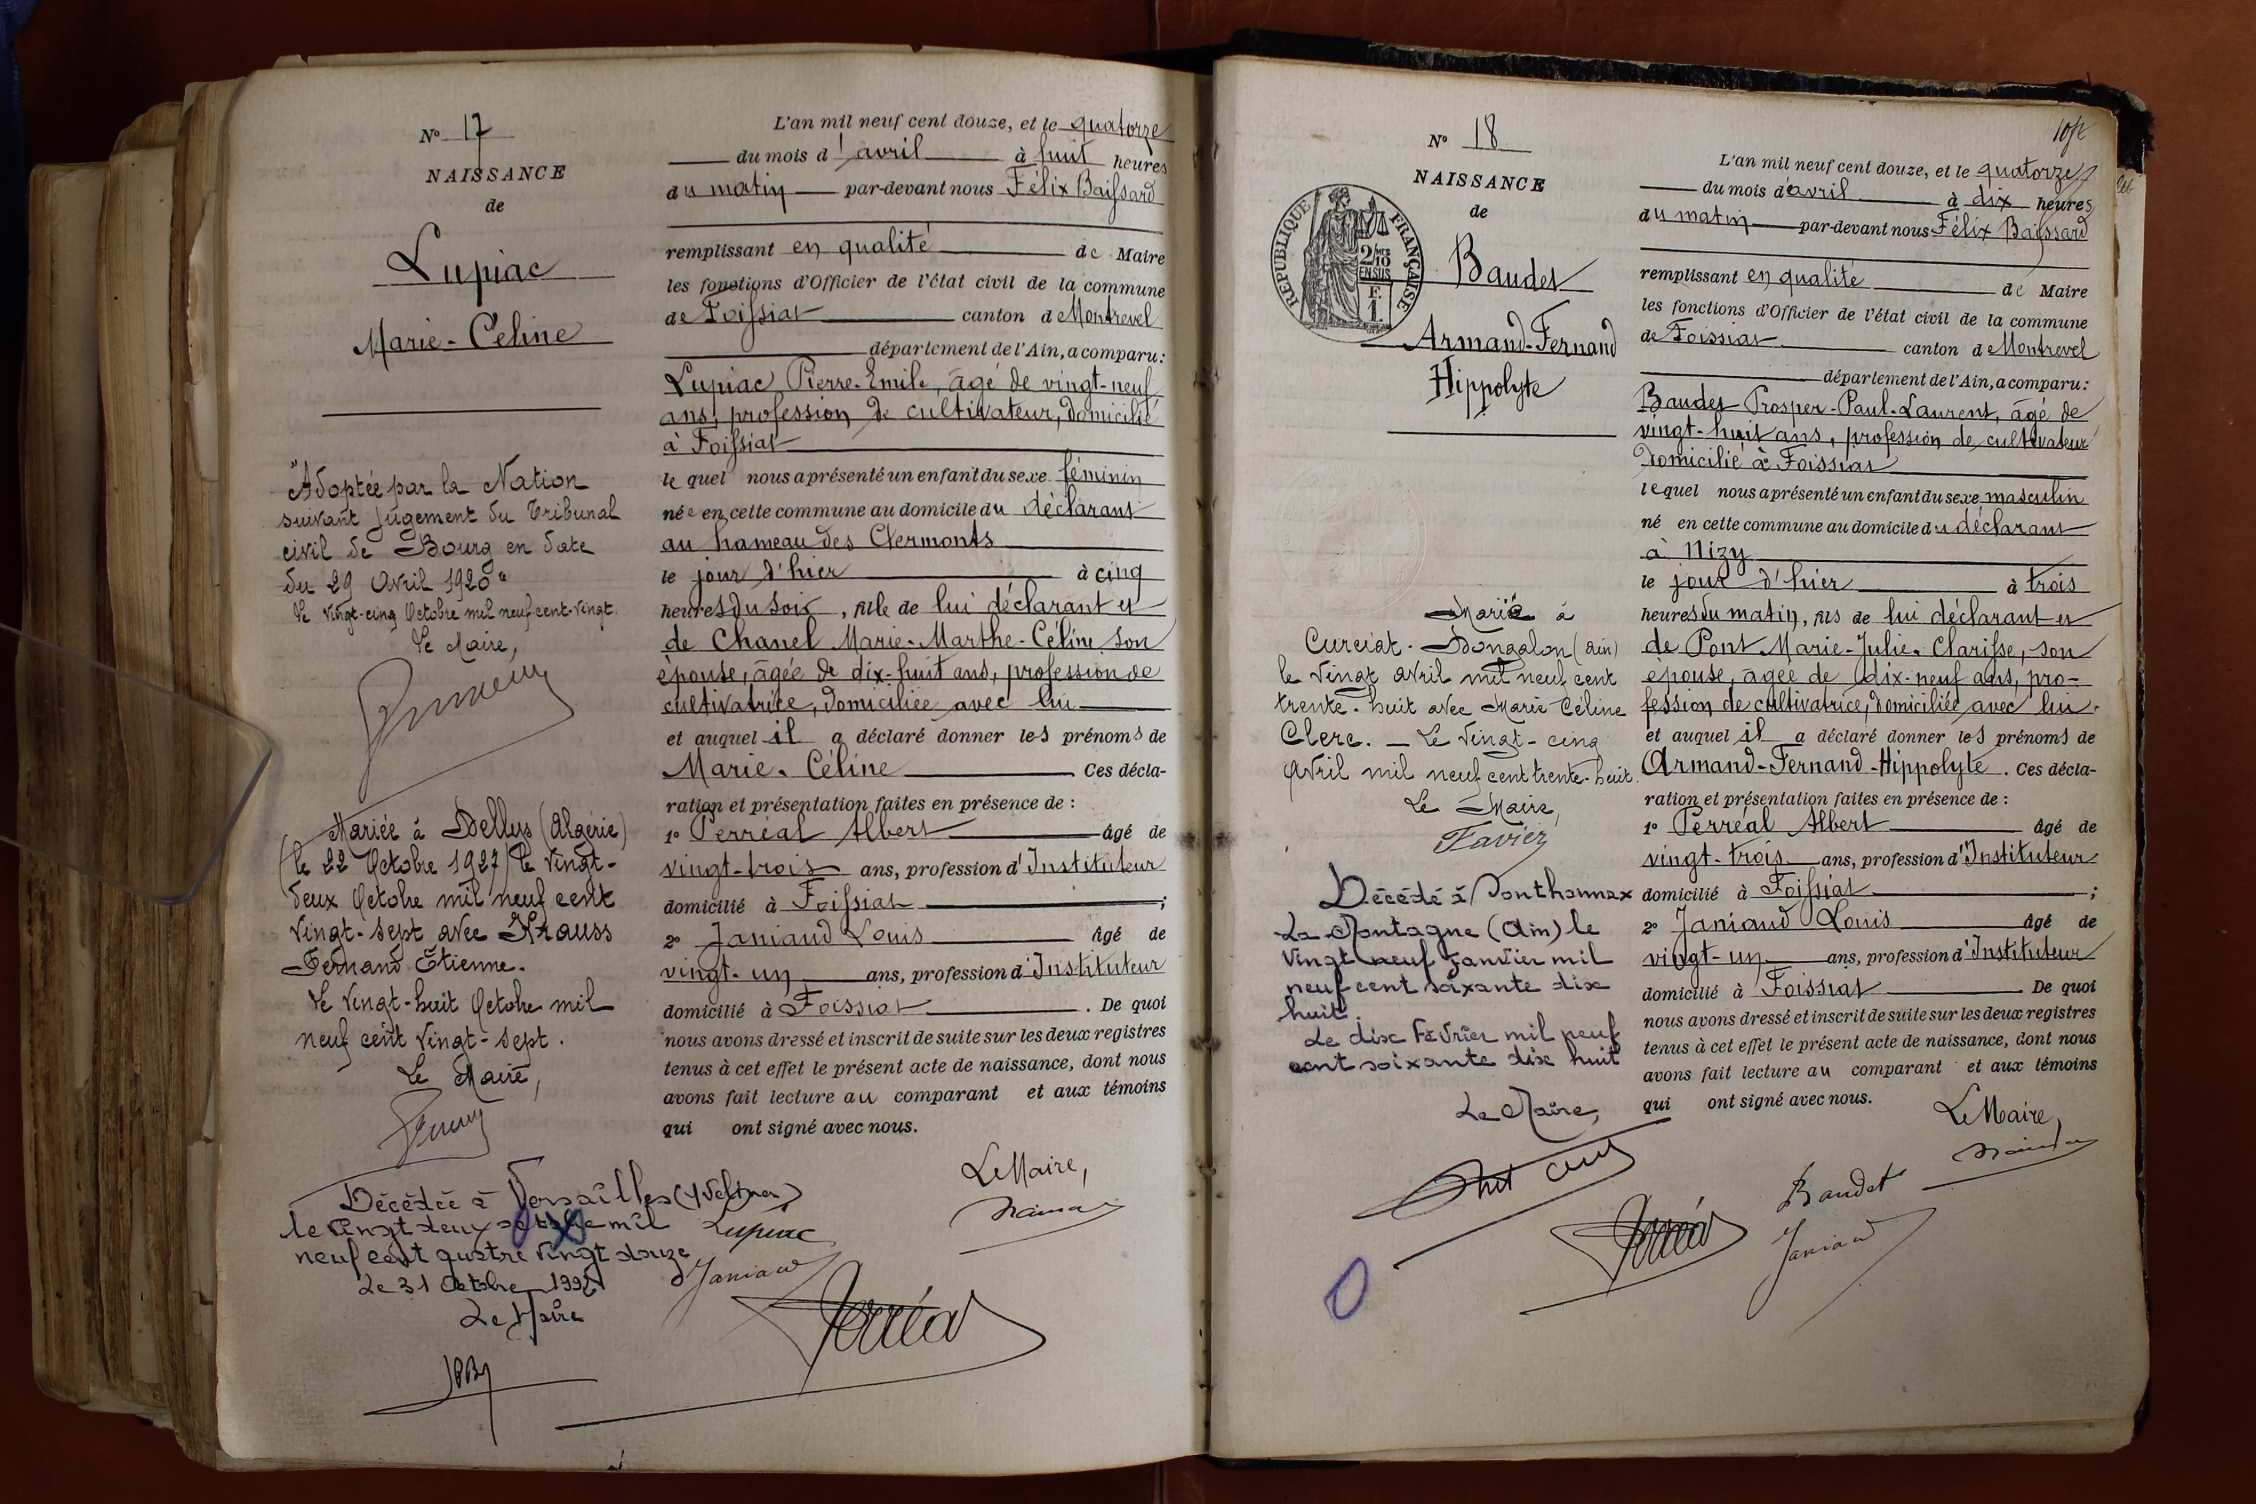 N° 17
NAISSANCE
de
Lupiac
Marie-Céline
"Adoptée par la Nation
suivant jugement du Tribunal
civil de Bourg en date
du 29 Avril 1920"
Le vingt-cinq Octobre mil neuf cent-vingt.
Le Maire,
Mariée à Dellys (Algérie)
(le 22 Octobre 1927) le vingt-
deux Octobre mil neuf cent
vingt-sept avec Krauss
Fernand Étienne.
Le vingt-huit Octobre mil
neuf cent vingt-sept.
Le Maire,
Décédée à Versailles (Yvelines)
le vingt deux octobre mil
neuf cent quatre vingt douze
Le 31 Octobre 1992
Le Maire
L'an mil neuf cent douze, et le quatorze
du mois d'avril à huit heures
du matin par-devant nous Félix Baissard
remplissant en qualité de Maire
les fonctions d'Officier de l'état civil de la commune
de Foissiat canton de Montrevel
département de l'Ain, a comparu:
Lupiac Pierre-Emile, âgé de vingt-neuf
ans, profession de cultivateur, domicilié
à Foissiat
lequel nous a présenté un enfant du sexe féminin
née en cette commune au domicile du déclarant
au hameau des Clermonts
le jour d'hier à cinq
heures du soir, fille de lui déclarant et
de Chanel Marie-Marthe-Céline son
épouse, âgée de dix-huit ans, profession de
cultivatrice, domiciliée avec lui
et auquel il a déclaré donner les prénoms de
Marie-Céline Ces décla-
ration et présentation faites en présence de :
1° Perréal Albert âgé de
vingt-trois ans, profession d'Instituteur
domicilié à Foissiat ;
2° Janiaud Louis âgé de
vingt-un ans, profession d'Instituteur
domicilié à Foissiat . De quoi
nous avons dressé et inscrit de suite sur les deux registres
tenus à cet effet le présent acte de naissance, dont nous
avons fait lecture au comparant et aux témoins
qui ont signé avec nous.
Le Maire,
Lupiac
Janiaud
Perréal
10
N° 18
NAISSANCE
de
Baudet
Armand-Fernand
Hippolyte
RÉPUBLIQUE FRANÇAISE
2/10
EN SUS
F.
1.
Marié à
Curciat-Dongalon (ain)
le vingt avril mil neuf cent
trente-huit avec Marie Céline
Clerc. — Le vingt-cinq
Avril mil neuf cent trente-huit.
Le Maire,
Favier
Décédé à Ponthomax
La Montagne (Ain) le
vingt neuf janvier mil
neuf cent soixante dix
huit.
Le dix Février mil neuf
cent soixante dix huit
Le Maire,
L'an mil neuf cent douze, et le quatorze
du mois d'avril à dix heures
du matin par-devant nous Félix Baissard
remplissant en qualité de Maire
les fonctions d'Officier de l'état civil de la commune
de Foissiat canton de Montrevel
département de l'Ain, a comparu:
Baudet Prosper-Paul-Laurent, âgé de
vingt-huit ans, profession de cultivateur
domicilié à Foissiat
lequel nous a présenté un enfant du sexe masculin
né en cette commune au domicile du déclarant
à Nizy
le jour d'hier à trois
heures du matin, fils de lui déclarant et
de Pont Marie-Julie-Clarisse, son
épouse, âgée de dix-neuf ans, pro-
fession de cultivatrice, domiciliée avec lui.
et auquel il a déclaré donner les prénoms de
Armand-Fernand-Hippolyte. Ces décla-
ration et présentation faites en présence de :
1° Perréal Albert âgé de
vingt-trois ans, profession d'Instituteur
domicilié à Foissiat ;
2° Janiaud Louis âgé de
vingt-un ans, profession d'Instituteur
domicilié à Foissiat De quoi
nous avons dressé et inscrit de suite sur les deux registres
tenus à cet effet le présent acte de naissance, dont nous
avons fait lecture au comparant et aux témoins
qui ont signé avec nous.
Le Maire,
Baudet
Perréal
Janiaud